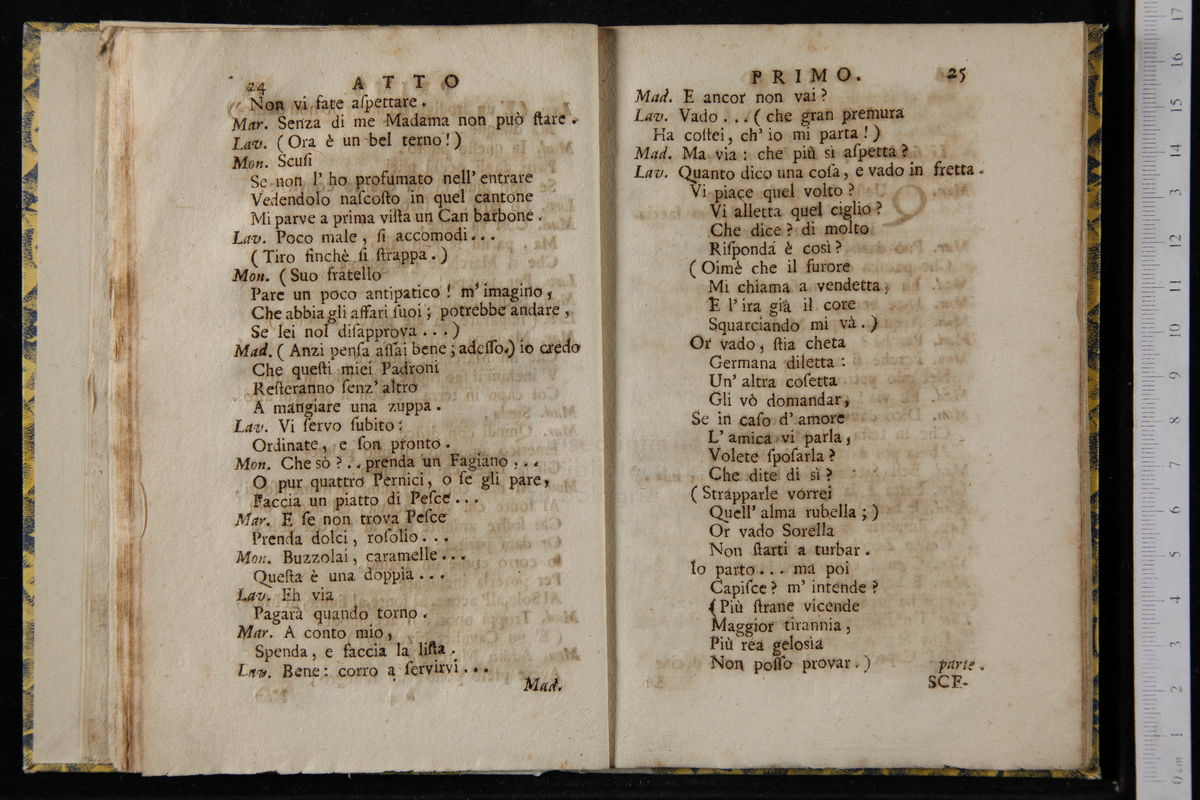 24 ATTO
Non vi fate aſpettare.
Mar. Senza di me Madama non può ſtare.
Lav. (Ora è un bel terno!)
Mon. Scuſi
Se non l' ho profumato nell' entrare
Vedendolo naſcoſto in quel cantone
Mi parve a prima viſta un Can barbone.
Lav. Poco male, ſi accomodi...
(Tiro finchè ſi ſtrappa.)
Mon. (Suo fratello
Pare un poco antipatico! m' imagino,
Che abbia gli affari ſuoi; potrebbe andare,
Se lei nol diſapprova...)
Mad. (Anzi penſa aſſai bene; adeſſo.) io credo
Che queſti miei Padroni
Reſteranno ſenz' altro
A mangiare una zuppa.
Lav. Vi ſervo ſubito:
Ordinate, e ſon pronto.
Mon. Che sò?.. prenda un Fagiano,..
O pur quattro Pernici, o ſe gli pare,
Faccia un piatto di Peſce...
Mar. E ſe non trova Peſce
Prenda dolci, roſolio...
Mon. Buzzolai, caramelle...
Queſta è una doppia...
Lav. Eh via
Pagarà quando torno.
Mar. A conto mio,
Spenda, e faccia la liſta.
Lav. Bene: corro a ſervirvi...
Mad.
PRIMO. 25
Mad. E ancor non vai?
Lav. Vado...(che gran premura
Ha coſtei, ch' io mi parta!)
Mad. Ma via: che più si aſpetta?
Lav. Quanto dico una coſa, e vado in fretta.
Vi piace quel volto?
Vi alletta quel ciglio?
Che dice? di molto
Riſponda è così?
(Oimè che il furore
Mi chiama a vendetta,
E l' ira già il core
Squarciando mi và.)
Or vado, ſtia cheta
Germana diletta:
Un' altra coſetta
Gli vò domandar,
Se in caſo d' amore
L' amica vi parla,
Volete ſpoſarla?
Che dite di sì?
(Strapparle vorrei
Quell' alma rubella;)
Or vado Sorella
Non ſtarti a turbar.
Io parto... ma poi
Capiſce? m' intende?
(Più ſtrane vicende
Maggior tirannia,
Più rea gelosìa
Non poſſo provar.) parte.
SCE-